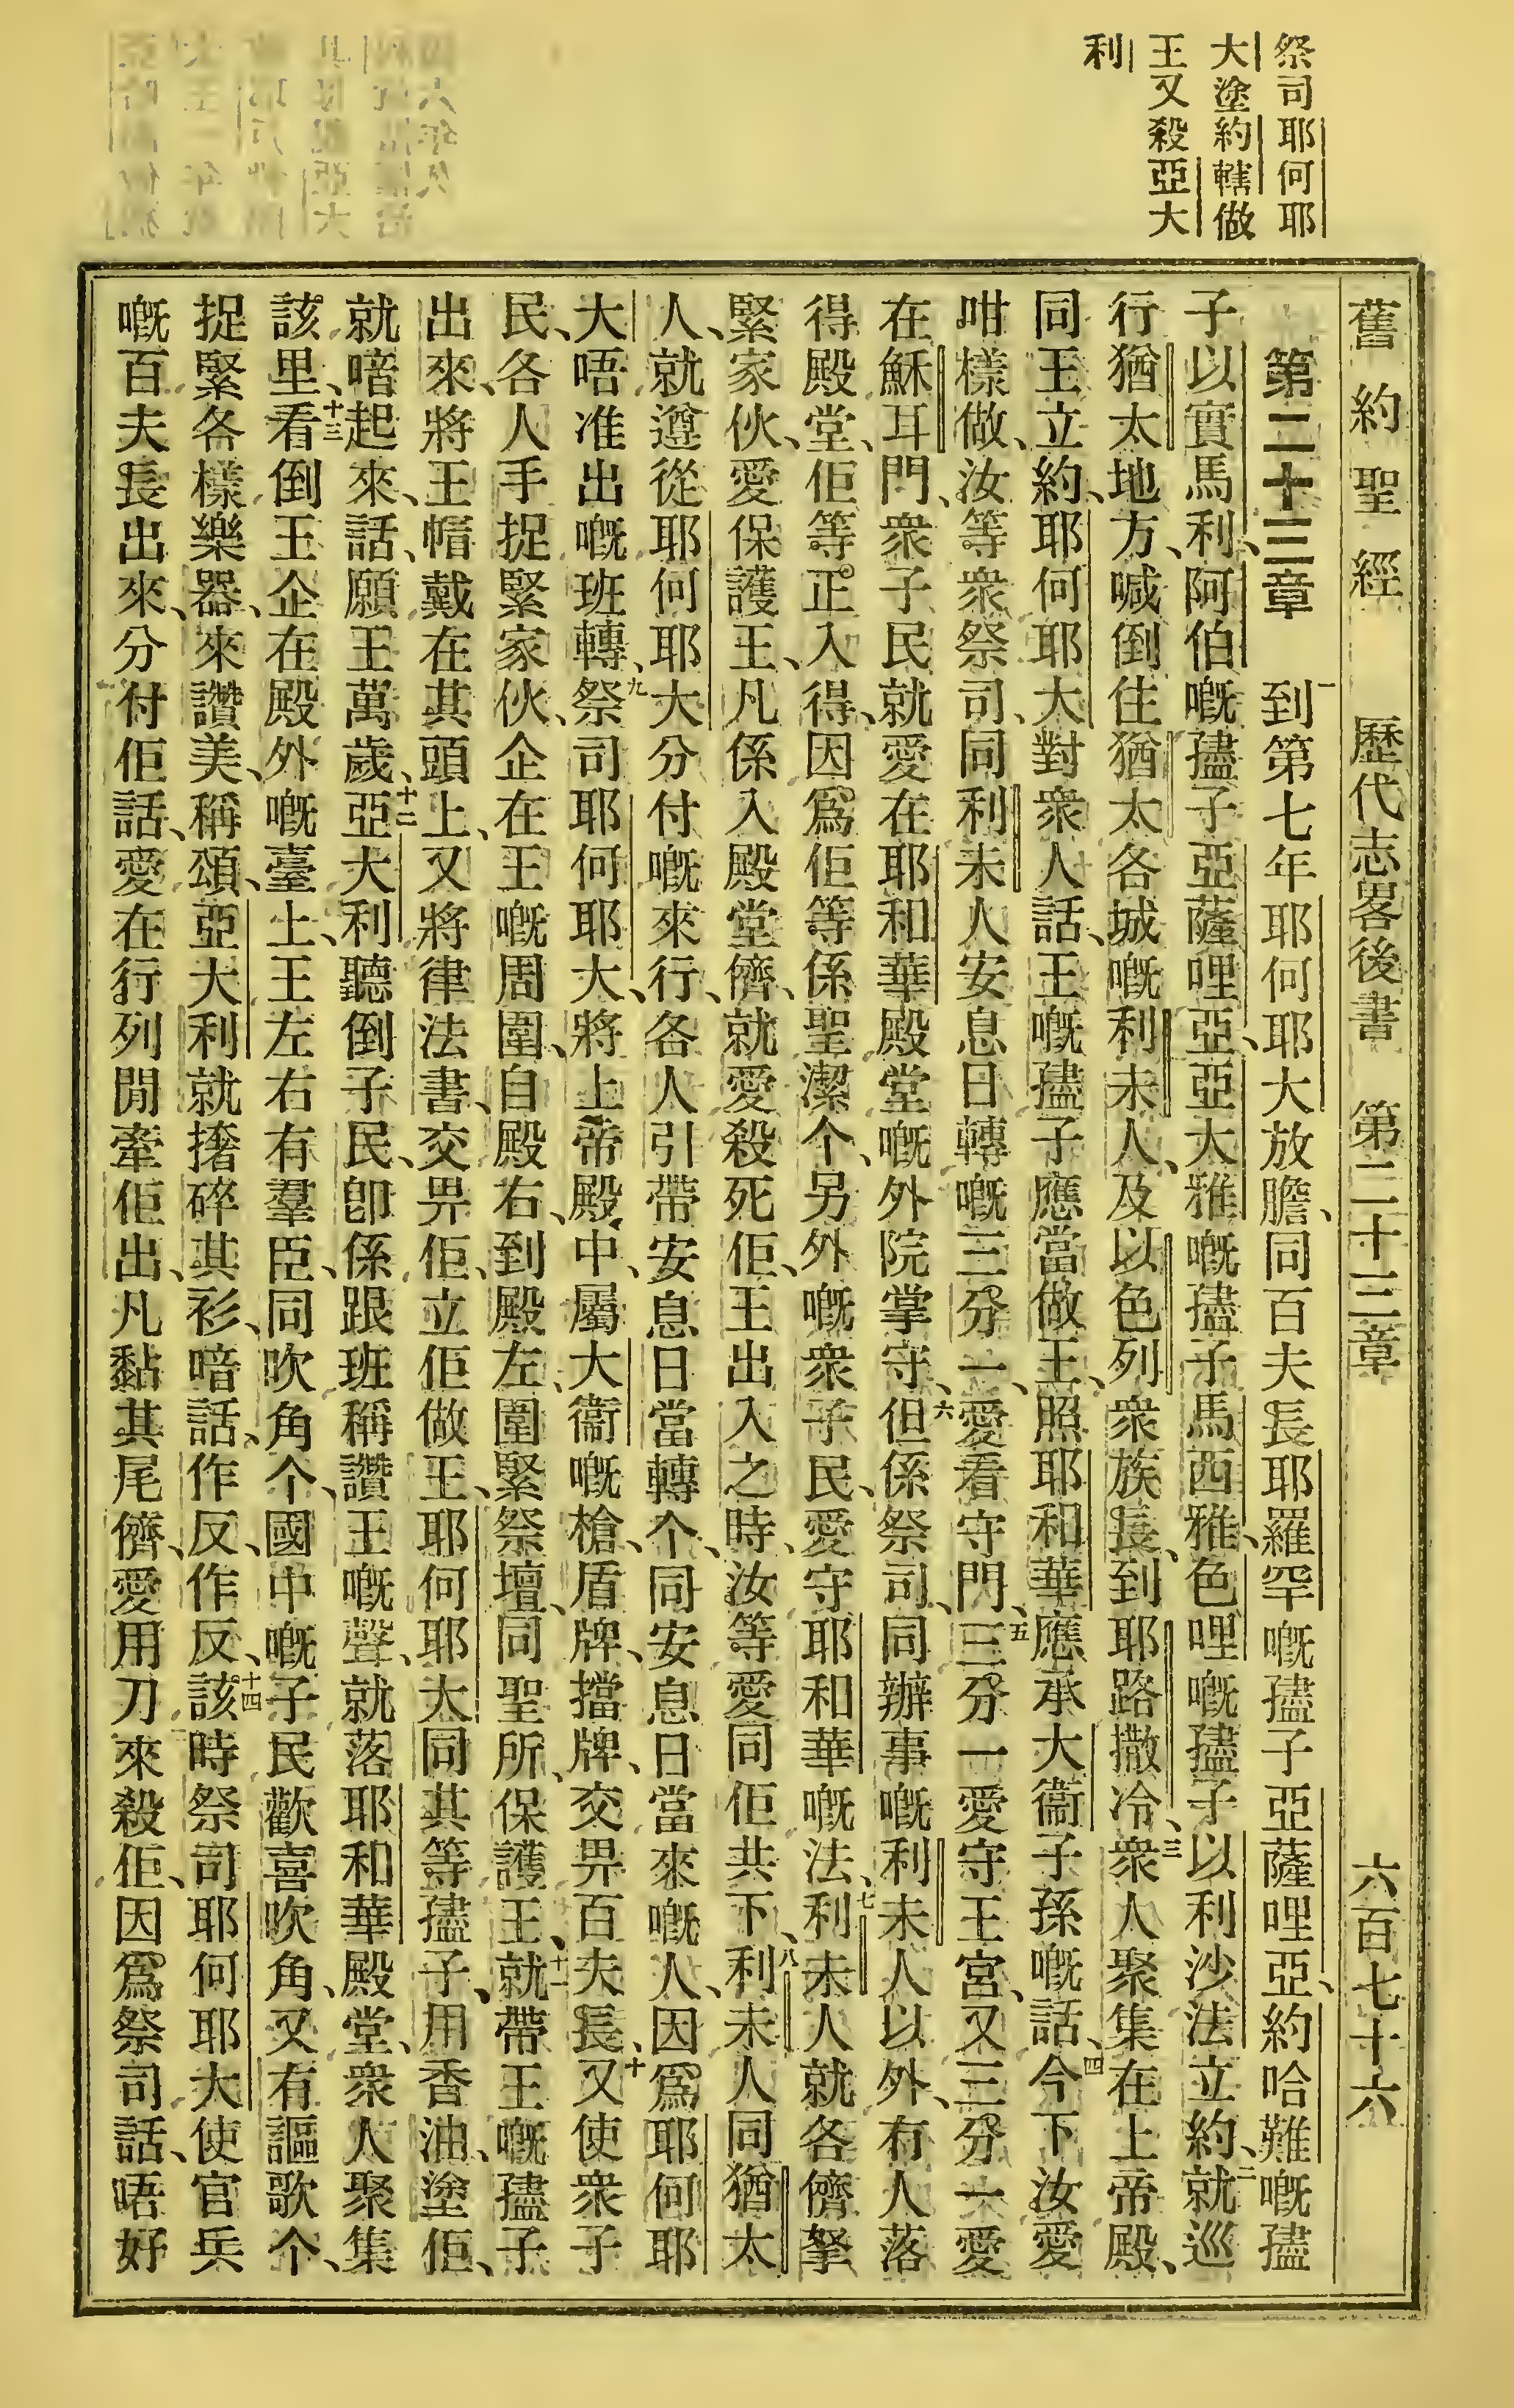 祭司耶何耶
大塗約轄做
王又殺亞大
利
舊約聖經 歷代志畧後書 第二十三章 六百七十六
第二十三章 一到第七年耶何耶大放膽、同百夫長耶羅罕嘅孻子亞薩哩亞、約哈難嘅孻
子以實馬利、阿伯嘅孻子亞薩哩亞、亞大雅嘅孻子馬西雅、色哩嘅孻子以利沙法立約、二就巡
行猶太地方、喊倒住猶太各城嘅利未人、及以色列衆族長、到耶路撒冷、三衆人聚集在上帝殿、
同王立約、耶何耶大對衆人話、王嘅孻子應當做王、照耶和華應承大衞子孫嘅話、四今下汝愛
咁樣做、汝等衆祭司、同利未人安息日轉嘅三分一、愛看守門、五三分一愛守王宮、又三分一愛
在穌耳門、衆子民就愛在耶和華殿堂嘅外院掌守、六但係祭司、同辦事嘅利未人以外、有人落
得殿堂、佢等正入得、因爲佢等係聖潔个、另外嘅衆子民、愛守耶和華嘅法、七利未人就各儕拏
緊家伙、愛保護王、凡係入殿堂儕、就愛殺死佢、王出入之時、汝等愛同佢共下、八利未人同猶太
人、就遵從耶何耶大分付嘅來行、各人引帶安息日當轉个、同安息日當來嘅人、因爲耶何耶
大唔准出嘅班轉、九祭司耶何耶大、將上帝殿中、屬大衞嘅槍、盾牌、擋牌、交畀百夫長、十又使衆子
民、各人手捉緊家伙、企在王嘅周圍、自殿右、到殿左、圍緊祭壇、同聖所、保護王、十一就帶王嘅孻子
出來、將王帽戴在其頭上、又將律法書、交畀佢、立佢做王、耶何耶大同其等孻子、用香油、塗佢、
就喑起來、話、願王萬歲、十二亞大利聽倒子民、卽係跟班稱讚王嘅聲、就落耶和華殿堂、衆人聚集
該里、十三看倒王企在殿外嘅臺上、王左右有羣臣、同吹角个、國中嘅子民歡喜吹角、又有謳歌个、
捉緊各樣樂器、來讚美、稱頌、亞大利就撦碎其衫、喑話、作反、作反、十四該時祭司耶何耶大使官兵
嘅百夫長出來、分付佢話、愛在行列閒牽佢出、凡黏其尾儕、愛用刀來殺佢、因爲祭司話、唔好